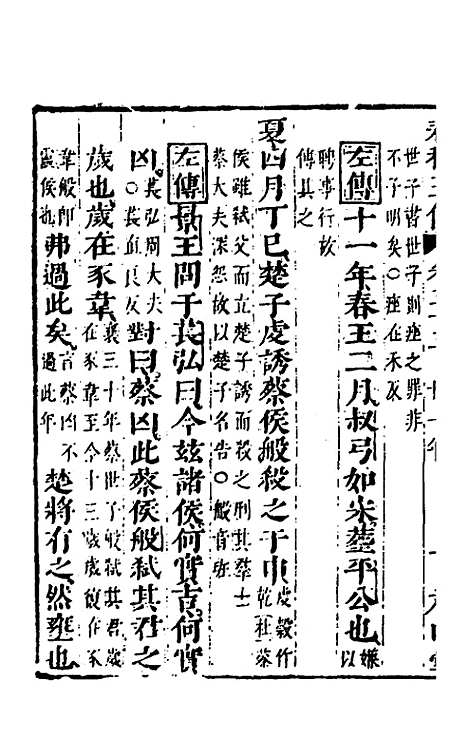 世子皆世子則痤之罪非
不子明矣○痤在禾反
左傳十一年春王二月叔弓如宋葬平公也嫌以
聘事行故
傳具之
夏四月丁巳楚子虔誘蔡侯般殺之于申虔穀作乾杜蔡
侯雖弒父而立楚子誘而殺之刑其羣士
蔡大夫深怨故以楚子名告○般音班
左傳景王問于萇弘曰今茲諸侯何實吉何實
凶萇弘周大夫○萇直良反對曰蔡凶此蔡侯般弒其君之
歲也歲在豕韋襄三十年蔡世子般弒其君歲在豕韋至今十三歲歲復在豕
韋般即靈侯也弗過此矣言蔡凶不過此年楚將有之然壅也